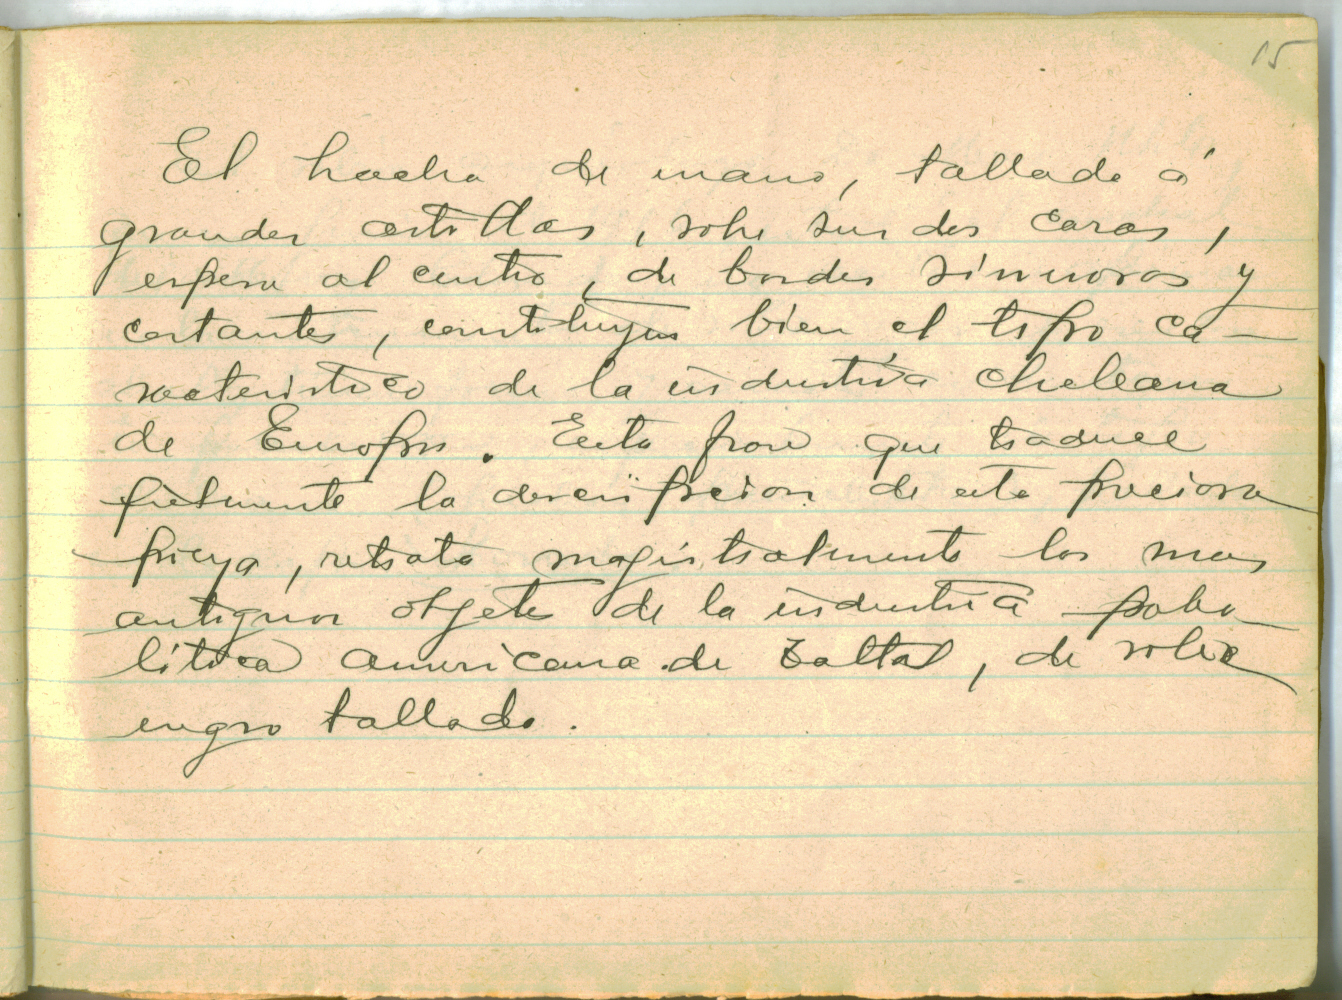 15
El hacha de mano, tallado á
grandes astillas, sobre sus dos caras,
espesa al centro, de bordes sinuosos y
cortantes, constituyen bien el tipo ca-
racteristico de la industria cheleana
de Europa. Esta frase que traduce
fielmente la descripcion de esta preciosa
pieza, retrata magistralmente los mas
antiguos objetos de la industria paleo-
litica americana de Taltal, de silice
negro tallado.